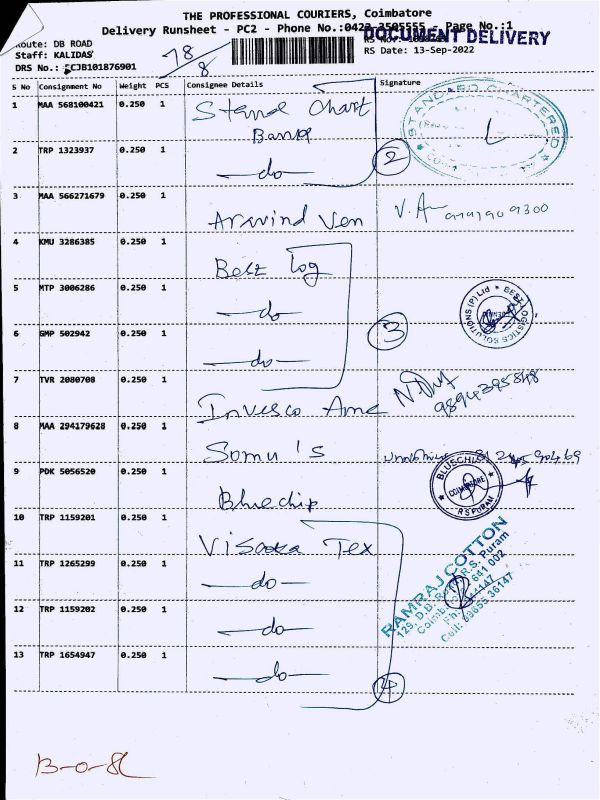 THE PROFESSIONAL COURIERS, Coimbatore
Delivery Runsheet - PC2 - Phone No.:0422-3505555 - Page No.:1
DOCUMENT DELIVERY
Route: DB ROAD
Staff: KALIDAS
RS Date: 13-Sep-2022
DRS No.: CJB101876901
78/8
S No Consignment No Weight PCS Consignee Details Signature
1 MAA 568100421 0.250 1 Stand Chart Bank
STANDARD CHARTERED
2 TRP 1323937 0.250 1 —do—
2
3 MAA 566271679 0.250 1 Arwind Ven V.A
4 KMU 3286385 0.250 1 Best Log
5 MTP 3006286 0.250 1 —do—
BEST LOGISTICS SOLUTIONS (P) Ltd
6 GMP 502942 0.250 1 —do—
3
7 TVR 2080708 0.250 1 Invesco Ame 9894395848
8 MAA 294179628 0.250 1 Somu's
9 PDK 5056520 0.250 1 Bluechip
BLUECHIP COIMBATORE R S PURAM
10 TRP 1159201 0.250 1 Visooka Tex
11 TRP 1265299 0.250 1 —do—
RAMRAJ COTTON
129, D.B. Road, R.S. Puram
Coimbatore 641 002
Cell: 89655 36147
12 TRP 1159202 0.250 1 —do—
13 TRP 1654947 0.250 1 —do—
4
B-0-8